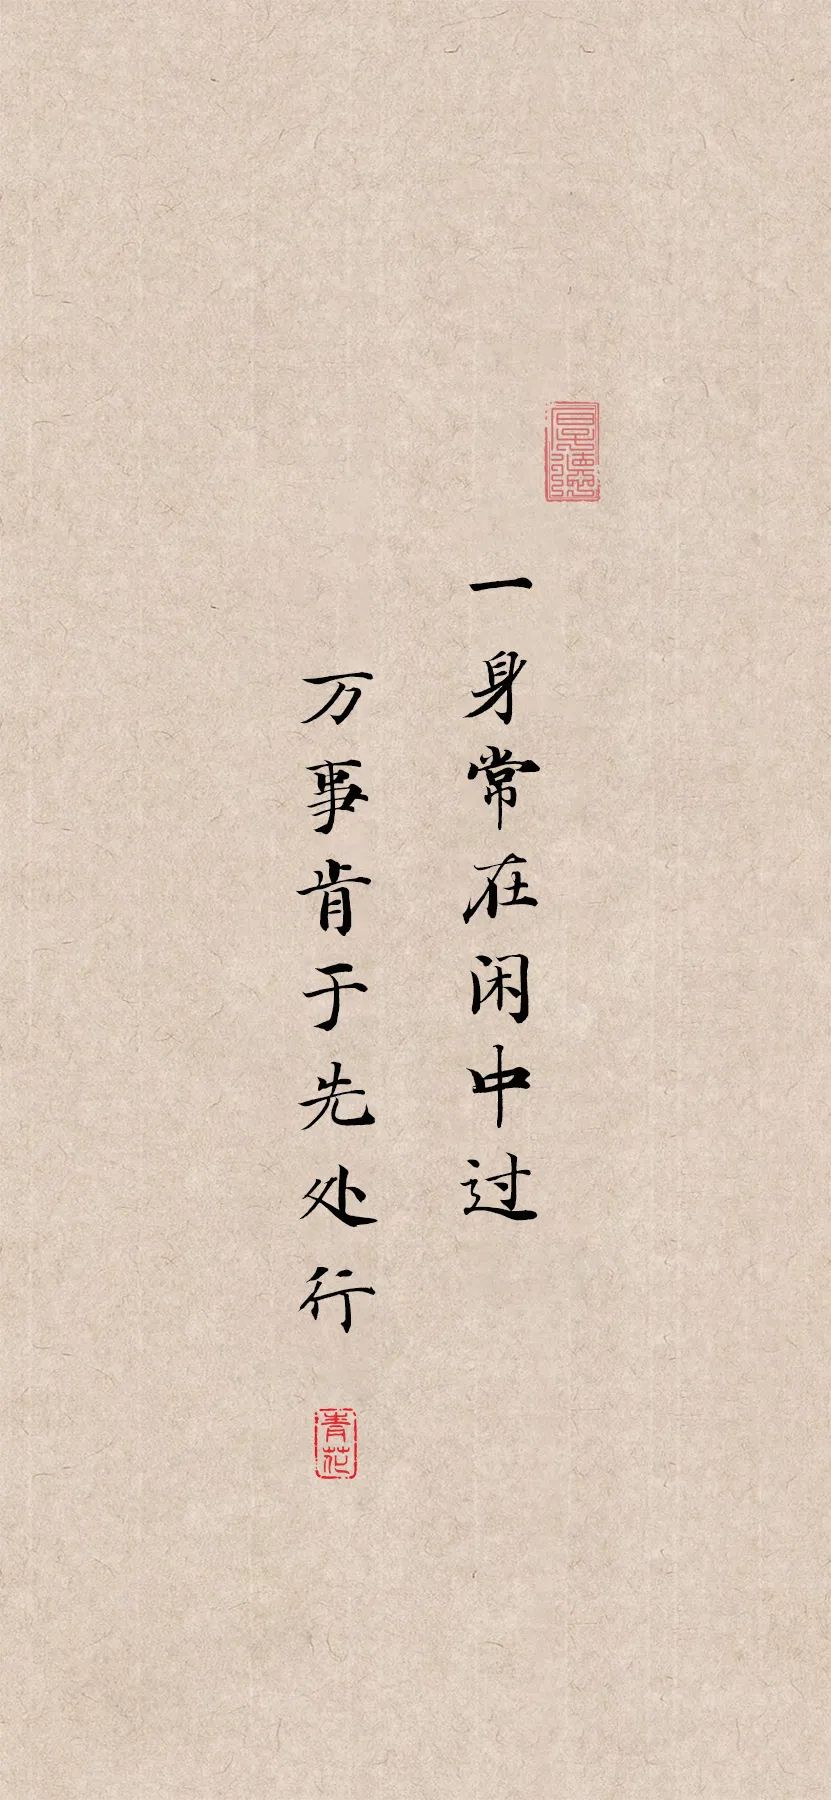 一身常在闲中过
万事肯于先处行
青花